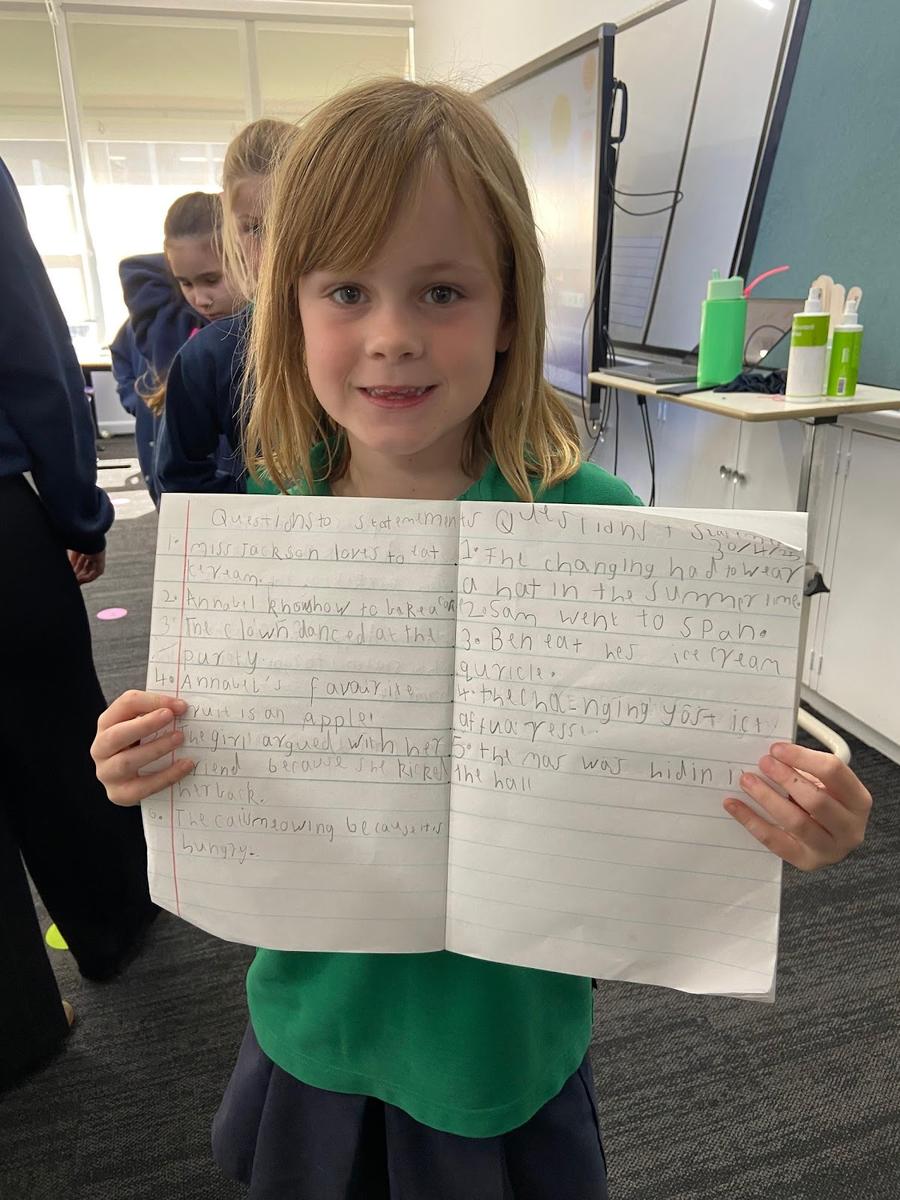 Questions to statements
1. Miss Jackson loves to eat
icream.
2. Annabel know how to bake a
3. The clown danced at the
purty.
4. Annabel's favourite
fruit is an apple.
The girl argued with her
friend because she kicked
her back.
6. The cat meowing because it is
hungry.
30/4/25
1. The changing had to wear
a hat in the summer
2. Sam went to span.
3. Ben eat hes ice cream
quricle.
4. the
5. the mas was hidin
the hall